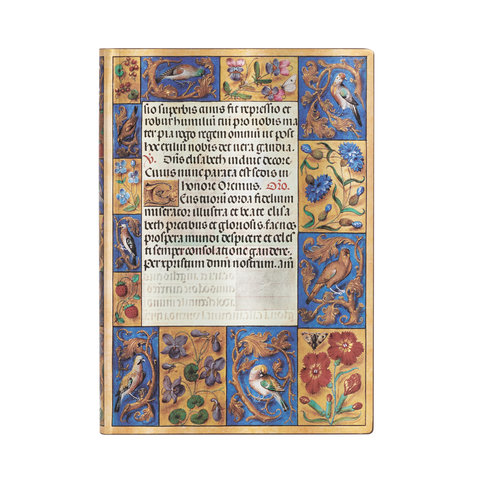 sio superbis cuius fit repressio et
robur humiliū tu pro nobis ma
ter pia rogo regem omniū ut post
hoc exiliū nobis det vera gaudia.
V. elisabeth decore
Cuius nunc parata est sedis in
honore Oremus. Oro.
Tuorū corda fidelium
miserator illustra et beate elisa
beth precibus et gloriosis. fac nos
prospera mundi despicere et celes
ti semper consolatione gaudere.
Per xpistum dnm nostrum. Am